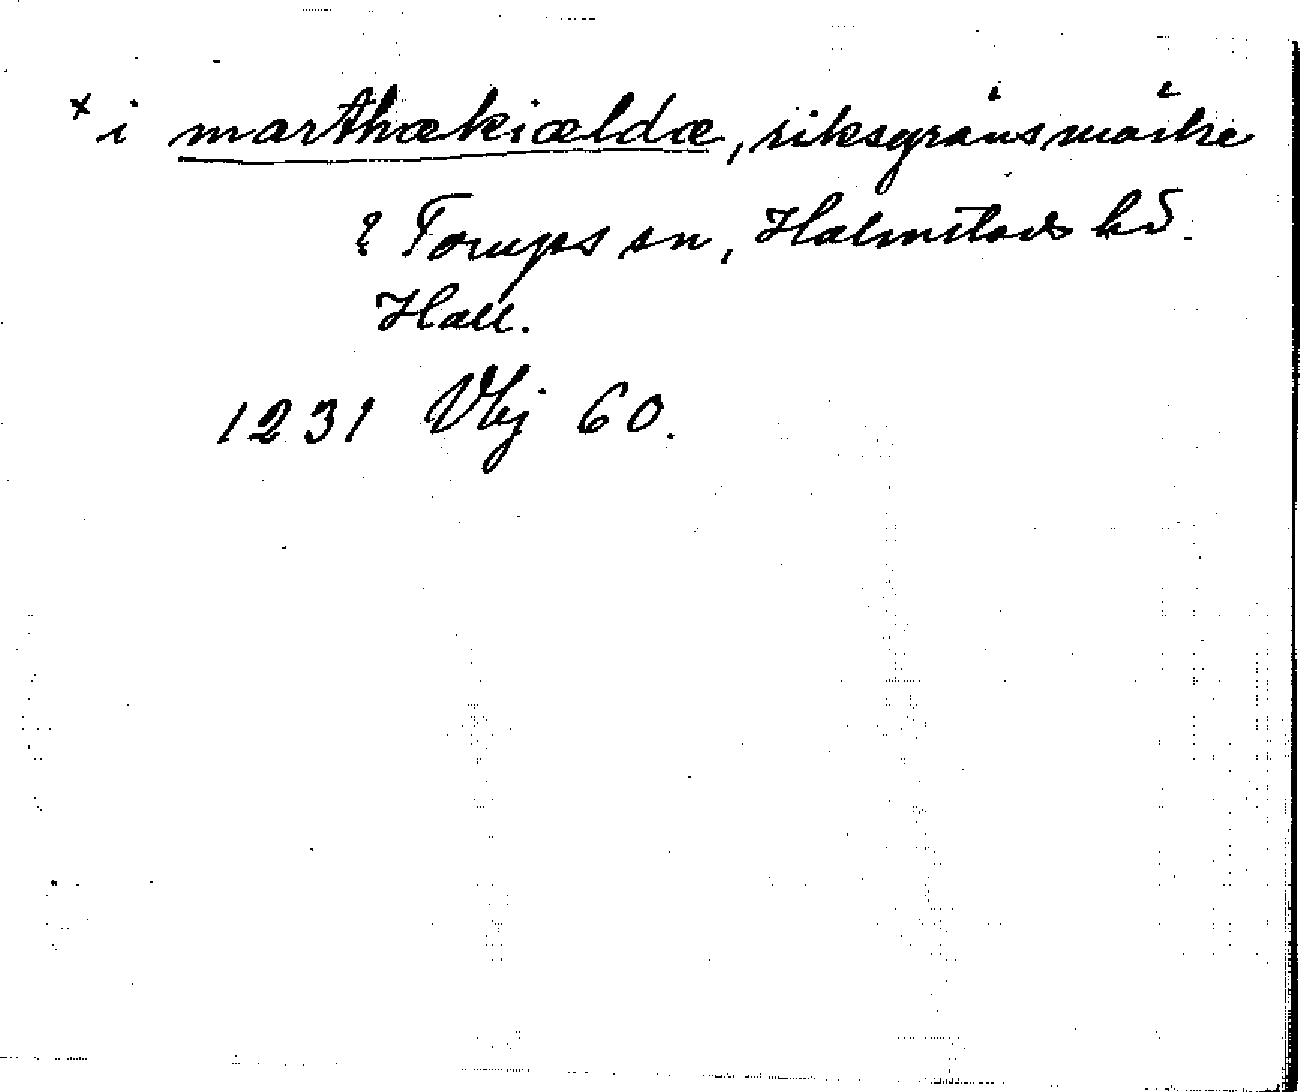 × i marthækiældæ, riksgränsmärke
? Torups sn, Halmstads hd.
Hall.
1231 Vhj 60.